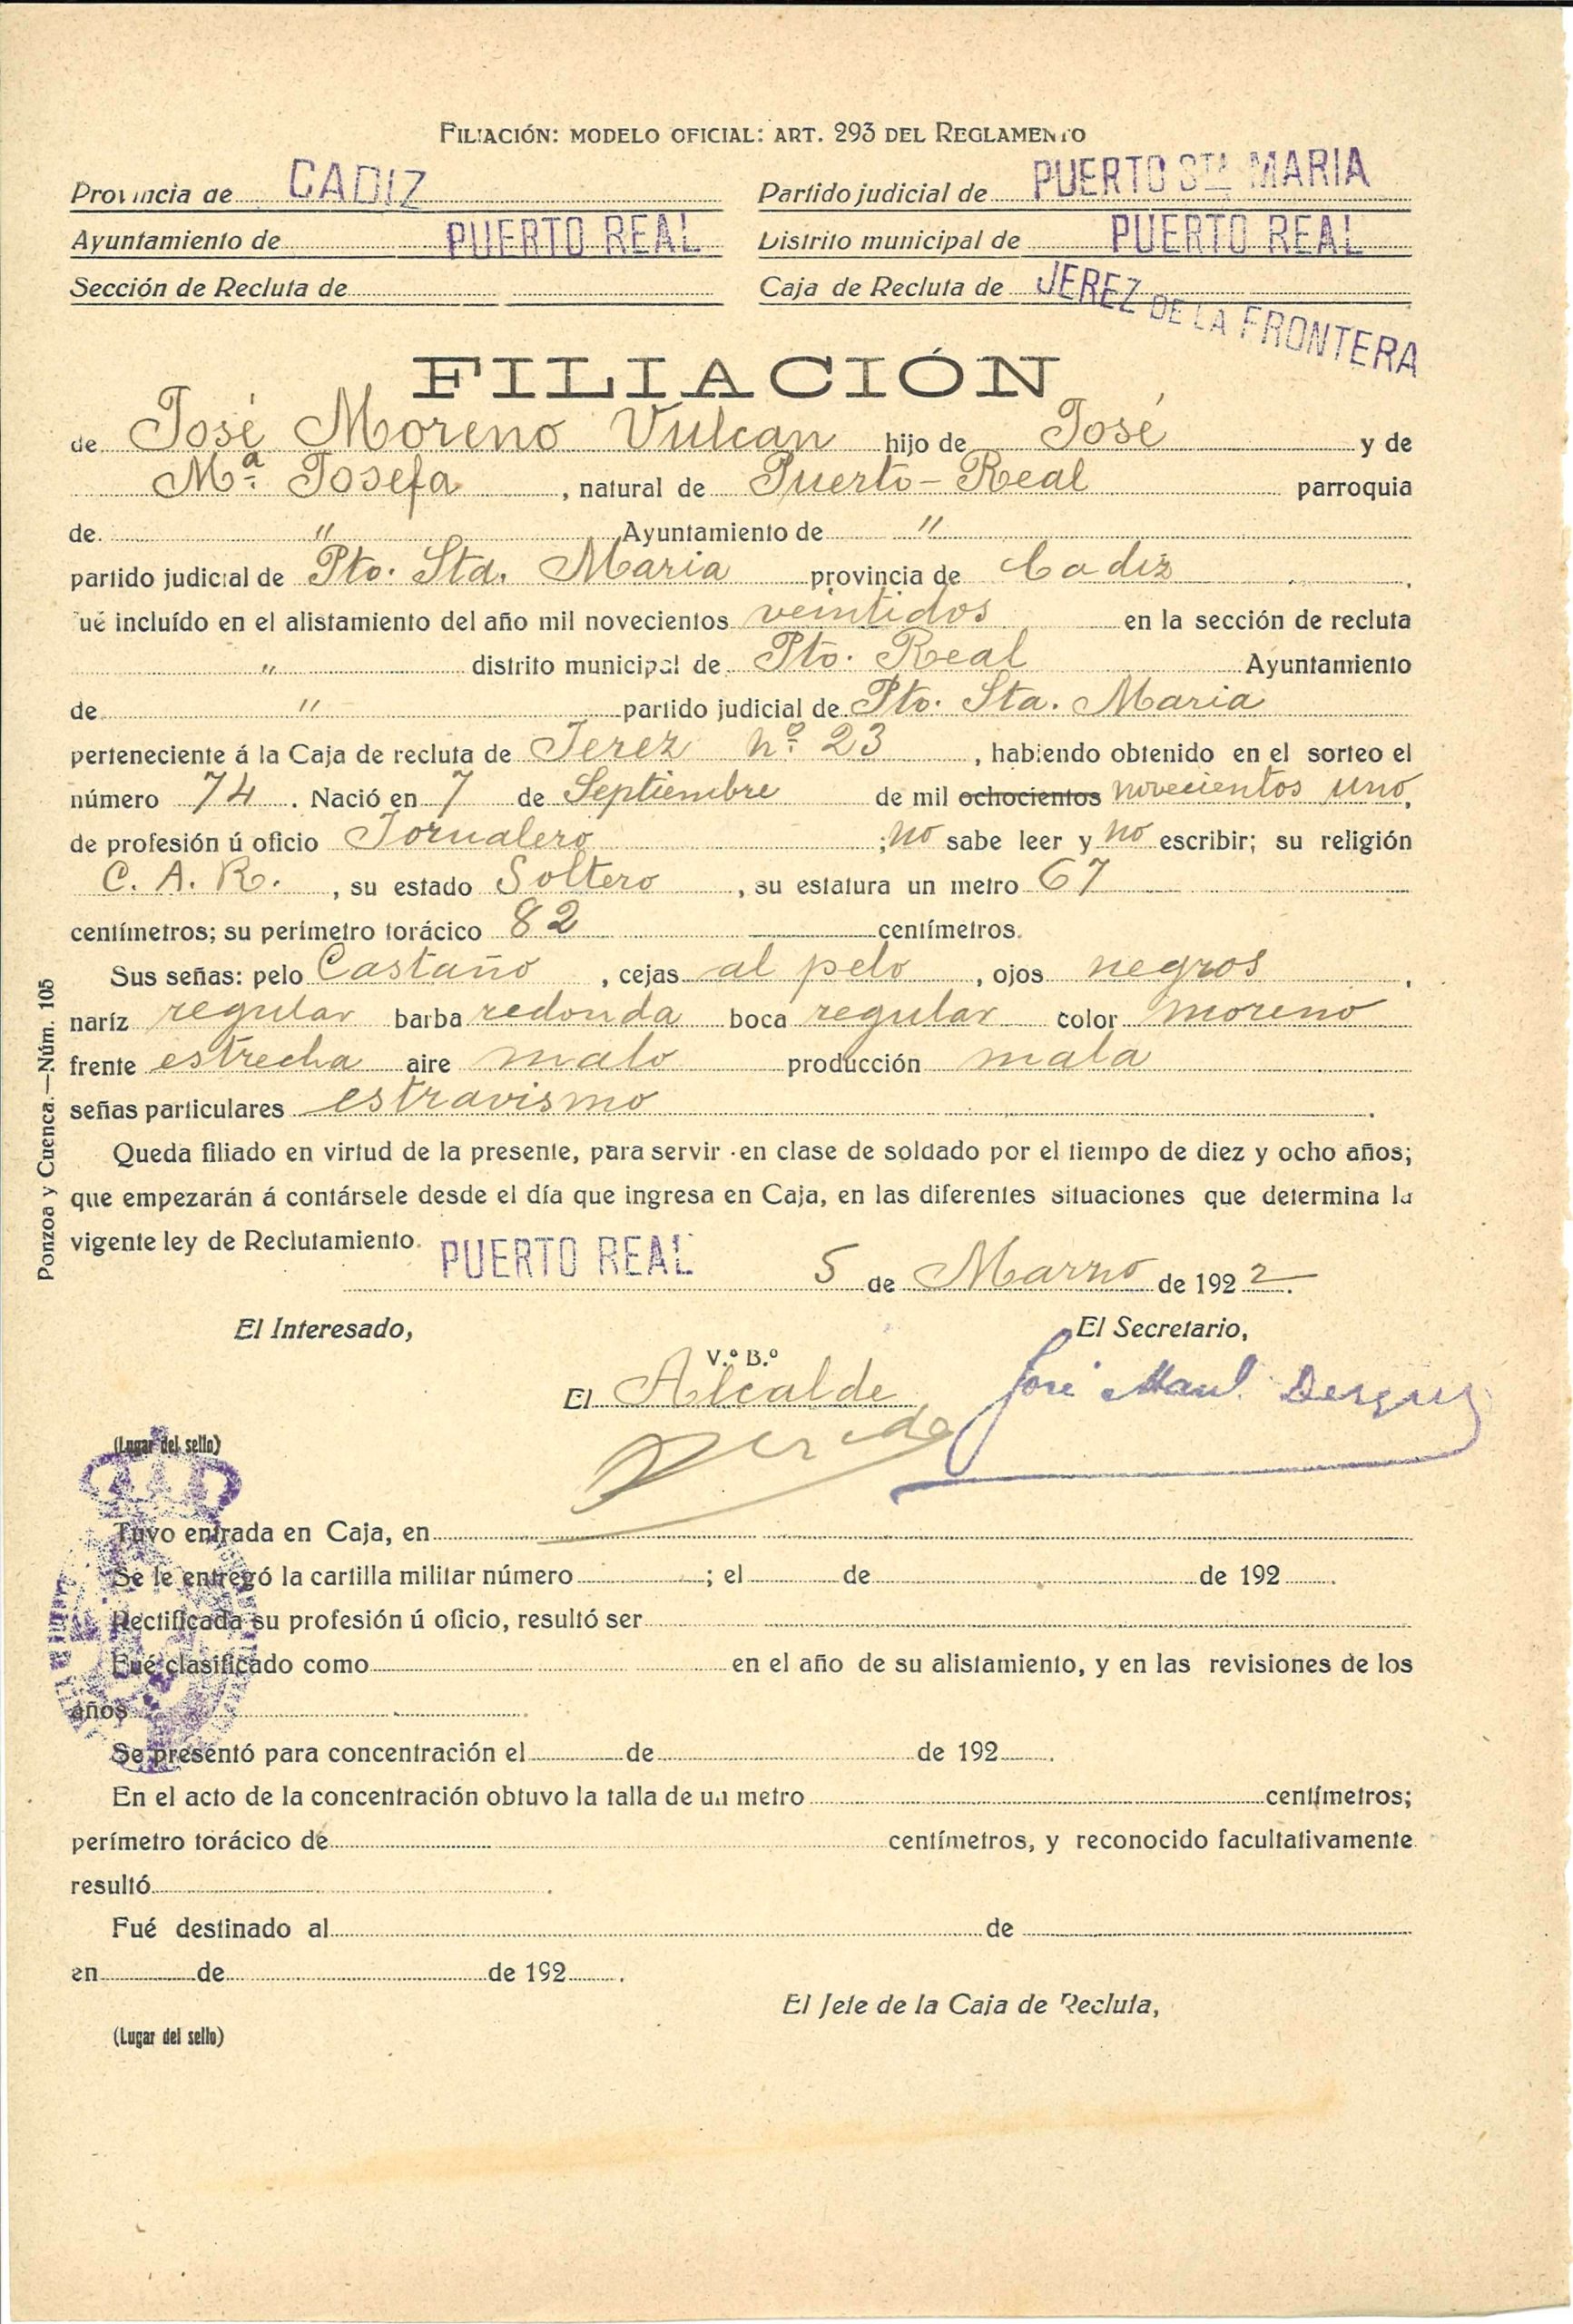 FILIACIÓN: MODELO OFICIAL: ART. 293 DEL REGLAMENTO
Provincia de CADIZ Partido judicial de PUERTO STA MARIA
Ayuntamiento de PUERTO REAL Distrito municipal de PUERTO REAL
Sección de Recluta de Caja de Recluta de JEREZ DE LA FRONTERA
FILIACIÓN
de José Moreno Vulcan hijo de José y de
Mª Josefa, natural de Puerto-Real parroquia
de " Ayuntamiento de "
partido judicial de Pto. Sta. Maria provincia de Cadiz.
fué incluído en el alistamiento del año mil novecientos veintidos en la sección de recluta
" distrito municipal de Pto. Real Ayuntamiento
de " partido judicial de Pto. Sta. Maria
perteneciente á la Caja de recluta de Jerez nº 23, habiendo obtenido en el sorteo el
número 74. Nació en 7 de Septiembre de mil ochocientos novecientos uno,
de profesión ú oficio Jornalero; no sabe leer y no escribir; su religión
C. A. R., su estado Soltero, su estatura un metro 67
centímetros; su perimetro torácico 82 centímetros.
Sus señas: pelo Castaño, cejas al pelo, ojos negros,
naríz regular barba redonda boca regular color moreno
frente estrecha aire malo producción mala
señas particulares estravismo.
Queda filiado en virtud de la presente, para servir en clase de soldado por el tiempo de diez y ocho años;
que empezarán á contársele desde el día que ingresa en Caja, en las diferentes situaciones que determina la
vigente ley de Reclutamiento.
PUERTO REAL 5 de Marzo de 1922.
El Interesado, El Secretario,
V.º B.º
El Alcalde José Manl.
(Lugar del sello)
Tuvo entrada en Caja, en
Se le entregó la cartilla militar número ; el de de 192 .
Rectificada su profesión ú oficio, resultó ser
Fué clasificado como en el año de su alistamiento, y en las revisiones de los
años .
Se presentó para concentración el de de 192 .
En el acto de la concentración obtuvo la talla de un metro centímetros;
perímetro torácico de centímetros, y reconocido facultativamente
resultó .
Fué destinado al de
en de de 192 .
El Jefe de la Caja de Recluta,
(Lugar del sello)
Ponzoa y Cuenca.—Núm. 105